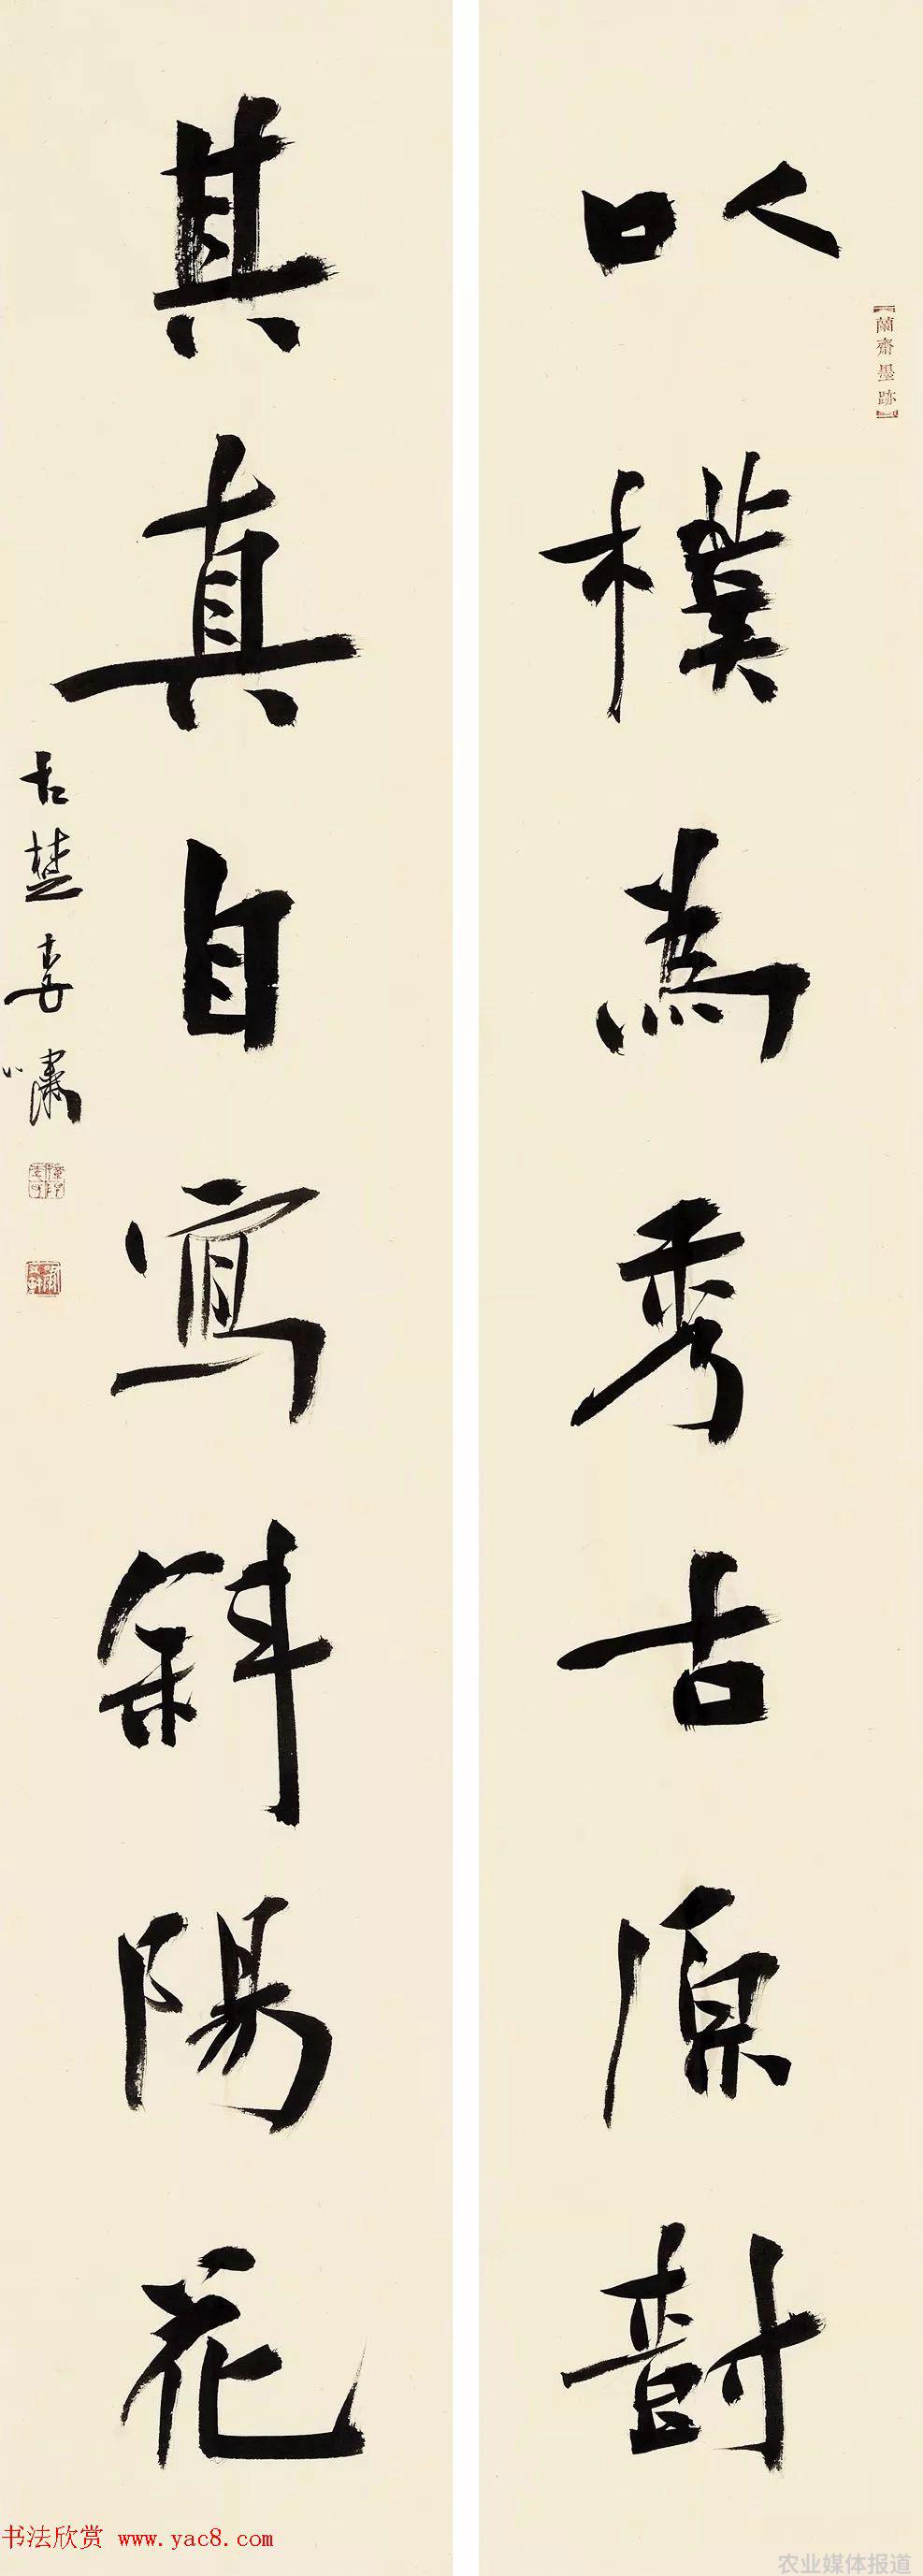 以樸為秀古原樹
【蘭齋墨跡】
其真自寫斜陽花
古楚李嘯
书法欣赏 www.yac8.com
农业媒体报道